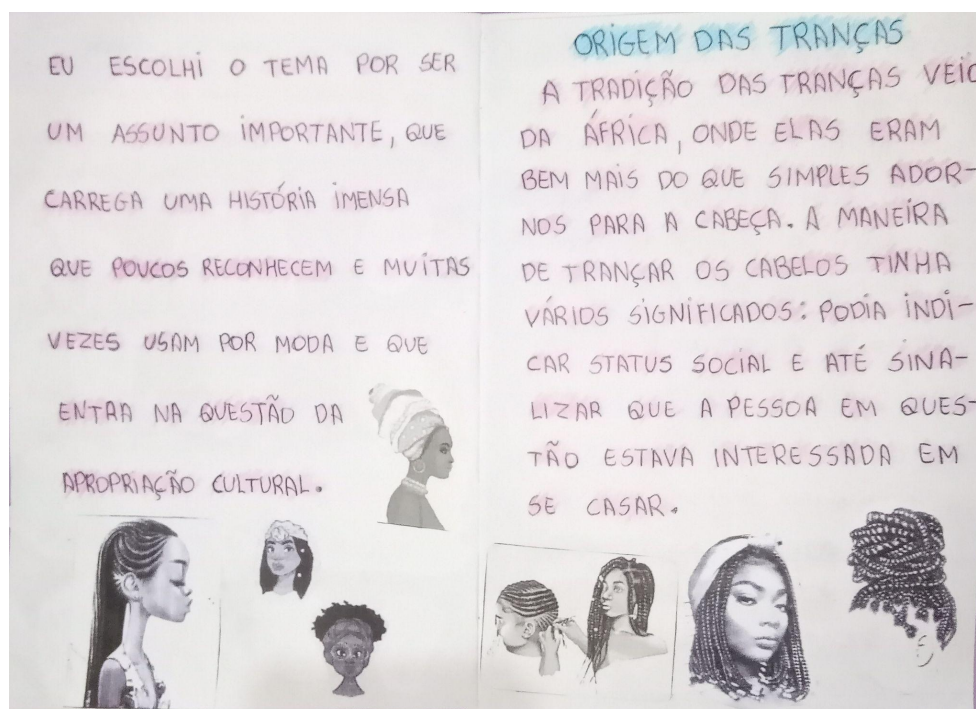 EU ESCOLHI O TEMA POR SER
UM ASSUNTO IMPORTANTE, QUE
CARREGA UMA HISTÓRIA IMENSA
QUE POUCOS RECONHECEM E MUITAS
VEZES USAM POR MODA E QUE
ENTRA NA QUESTÃO DA
APROPRIAÇÃO CULTURAL.
ORIGEM DAS TRANÇAS
A TRADIÇÃO DAS TRANÇAS VEIO
DA ÁFRICA, ONDE ELAS ERAM
BEM MAIS DO QUE SIMPLES ADOR-
NOS PARA A CABEÇA. A MANEIRA
DE TRANÇAR OS CABELOS TINHA
VÁRIOS SIGNIFICADOS: PODIA INDI-
CAR STATUS SOCIAL E ATÉ SINA-
LIZAR QUE A PESSOA EM QUES-
TÃO ESTAVA INTERESSADA EM
SE CASAR.